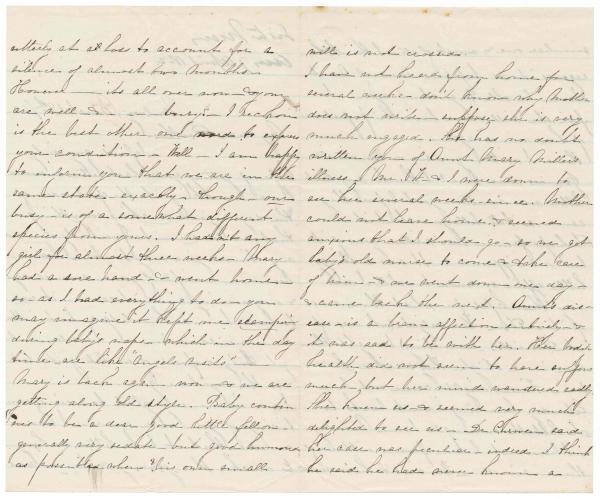 utterly at a loss to account for a
silence of almost two months.
However — its all over now — & you
are well & — busy" — I reckon
is the best other one word to express
your condition. Well — I am happy
to inform you that we are in the
same state exactly — though our
busy — is of a somewhat different
species from yours. I hadn't any
girl for almost three weeks — Mary
had a sore hand & went home —
so as I had everything to do you
may imagine it kept me stamping
during baby's naps — which in the day
time are like "Angels visits" —
Mary is back again now — & we are
getting along old style. Baby contin
ues to be a dear good little fellow —
generally very sedate but good humored
as possible when his own small
will is not crossed.
I have not heard from home for
several weeks — don't know why Mother
does not write — suppose she is very
much engaged. She has no doubt
written you of Aunt Mary
illness. Mr. & I were down to
see her several weeks since. Mother
could not leave home & seemed
anxious that I should go — so we got
baby's old nurse to come & take care
of him — & we went down one day —
& came back the next. Aunt's dis-
ease is a brain affection & —
it was sad to be with her. Her bodily
health did not seem to have suffered
much but her mind wandered sadly
She knew us — & seemed very much
delighted to see us — Dr. said
her case was peculiar — indeed I think
he said he had never known a